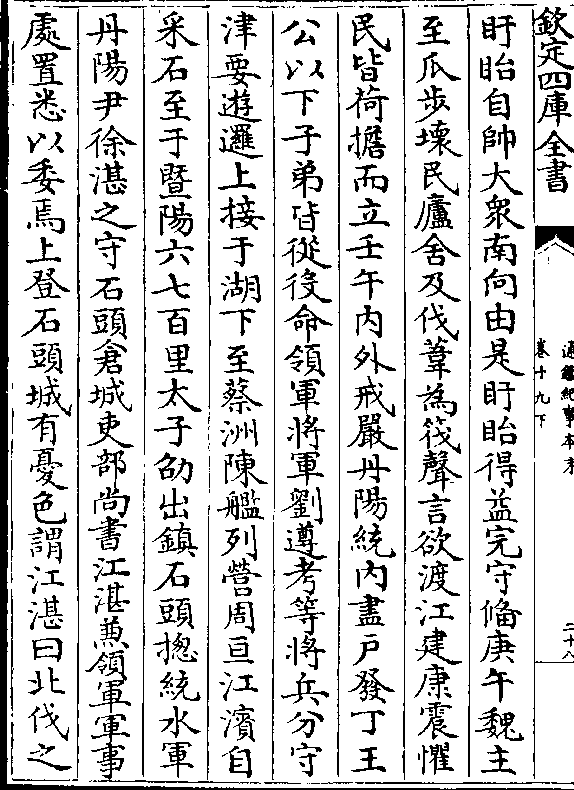 欽定四庫全書
通鑑紀事本末
卷十九下
二十八
盱眙自帥大衆南向由是盱眙得益完守備庚午魏主
至瓜步壞民廬舍及伐葦為筏聲言欲渡江建康震懼
民皆荷擔而立壬午内外戒嚴丹陽統内盡戶發丁王
公以下子弟皆從役命領軍將軍劉遵考等將兵分守
津要遊邏上接于湖下至蔡洲陳艦列營周亘江濱自
采石至于暨陽六七百里太子劭出鎮石頭揔統水軍
丹陽尹徐湛之守石頭倉城吏部尚書江湛兼領軍軍事
處置悉以委焉上登石頭城有憂色謂江湛曰北伐之